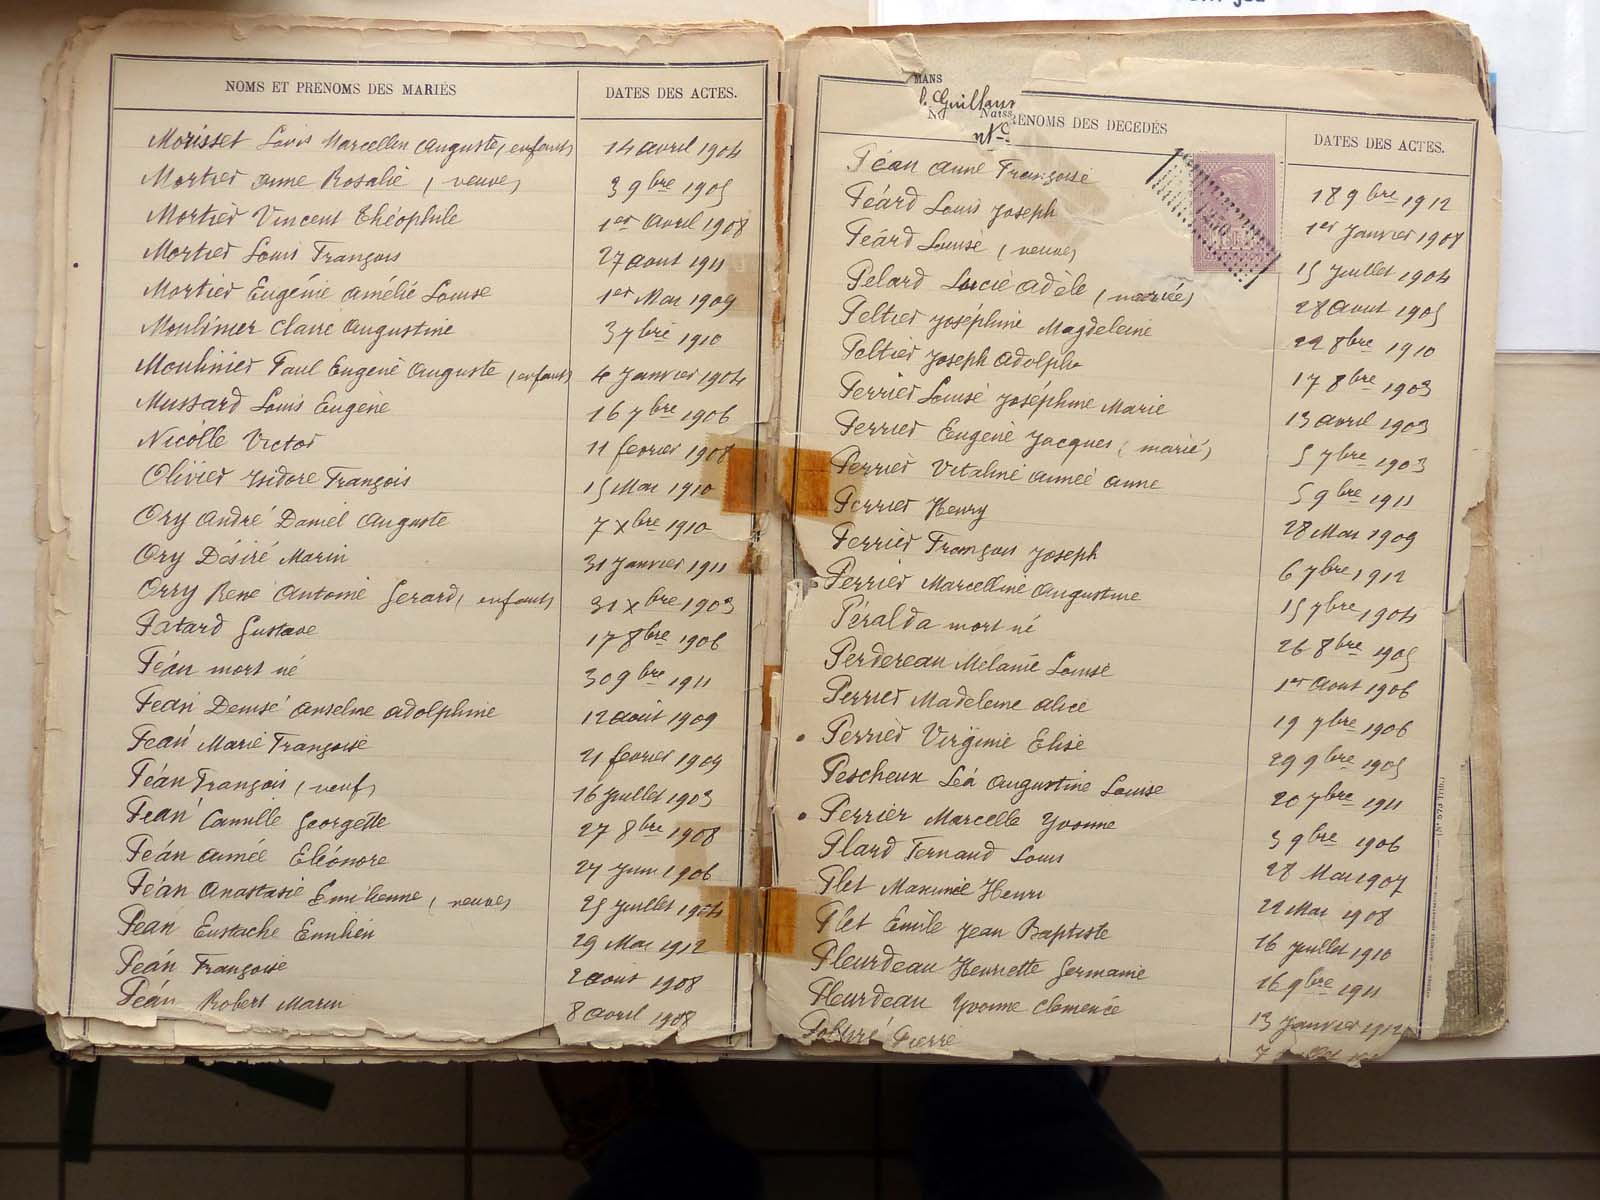 NOMS ET PRENOMS DES MARIÉS DATES DES ACTES.
Morisset Louis Marcellin Auguste (enfant) 14 avril 1904
Mortier Anne Rosalie (veuve) 3 9bre 1905
Mortier Vincent Théophile 1er avril 1908
Mortier Louis François 27 aout 1911
Mortier Eugénie Amélie Louise 1er Mai 1909
Moulinier Claire Augustine 3 7bre 1910
Moulinier Paul Eugène Auguste (enfant) 4 Janvier 1904
Mussard Louis Eugène 16 7bre 1906
Nicolle Victor 11 fevrier 1908
Olivier Isidore François 15 Mai 1910
Ory André Daniel Auguste 7 Xbre 1910
Ory Désiré Marin 31 Janvier 1911
Orry René Antoine Gerard (enfant) 31 Xbre 1903
Patard Gustave 17 8bre 1906
Péan mort né 30 9bre 1911
Péan Denise Anselme Adolphine 12 août 1909
Péan Marie Françoise 21 fevrier 1909
Péan François (veuf) 16 Juillet 1903
Péan Camille Georgette 27 8bre 1908
Péan Aimée Eléonore 27 Juin 1906
Péan Anastasie Emilienne (veuve) 25 Juillet 1904
Péan Eustache Emilien 29 Mai 1912
Péan Françoise 2 août 1908
Péan Robert Marin 8 avril 1908
MANS
Guillaur
Naiss
RENOMS DES DECEDÉS DATES DES ACTES.
Péan Anne Françoise 18 9bre 1912
Péard Louis Joseph 1er Janvier 1908
Péard Louise (veuve) 15 Juillet 1904
Pelard Lucie Adèle (mariée) 28 aout 1905
Peltier Joséphine Magdeleine 22 8bre 1910
Peltier Joseph Adolphe 17 8bre 1903
Perrier Louise Joséphine Marie 13 avril 1903
Perrier Eugène Jacques (marié) 5 7bre 1903
Perrier Vitaline Aimée Anne 5 9bre 1911
Perrier Henry 28 Mai 1909
Perrier François Joseph 6 7bre 1912
Perrier Marcelline Augustine 15 7bre 1904
Péralda mort né 26 8bre 1905
Perdereau Mélanie Louise 1er Aout 1906
Perrier Madeleine Alice 19 7bre 1906
Perrier Virginie Elise 29 9bre 1905
Pescheux Léa Augustine Louise 20 7bre 1911
Perrier Marcelle Yvonne 3 9bre 1906
Plard Fernand Louis 28 Mai 1907
Plet Maximée Henri 22 Mai 1908
Plet Emile Jean Baptiste 16 Juillet 1910
Pleurdeau Henriette Germaine 16 9bre 1911
Pleurdeau Yvonne Clemence 13 Janvier 1912
Pierre 7